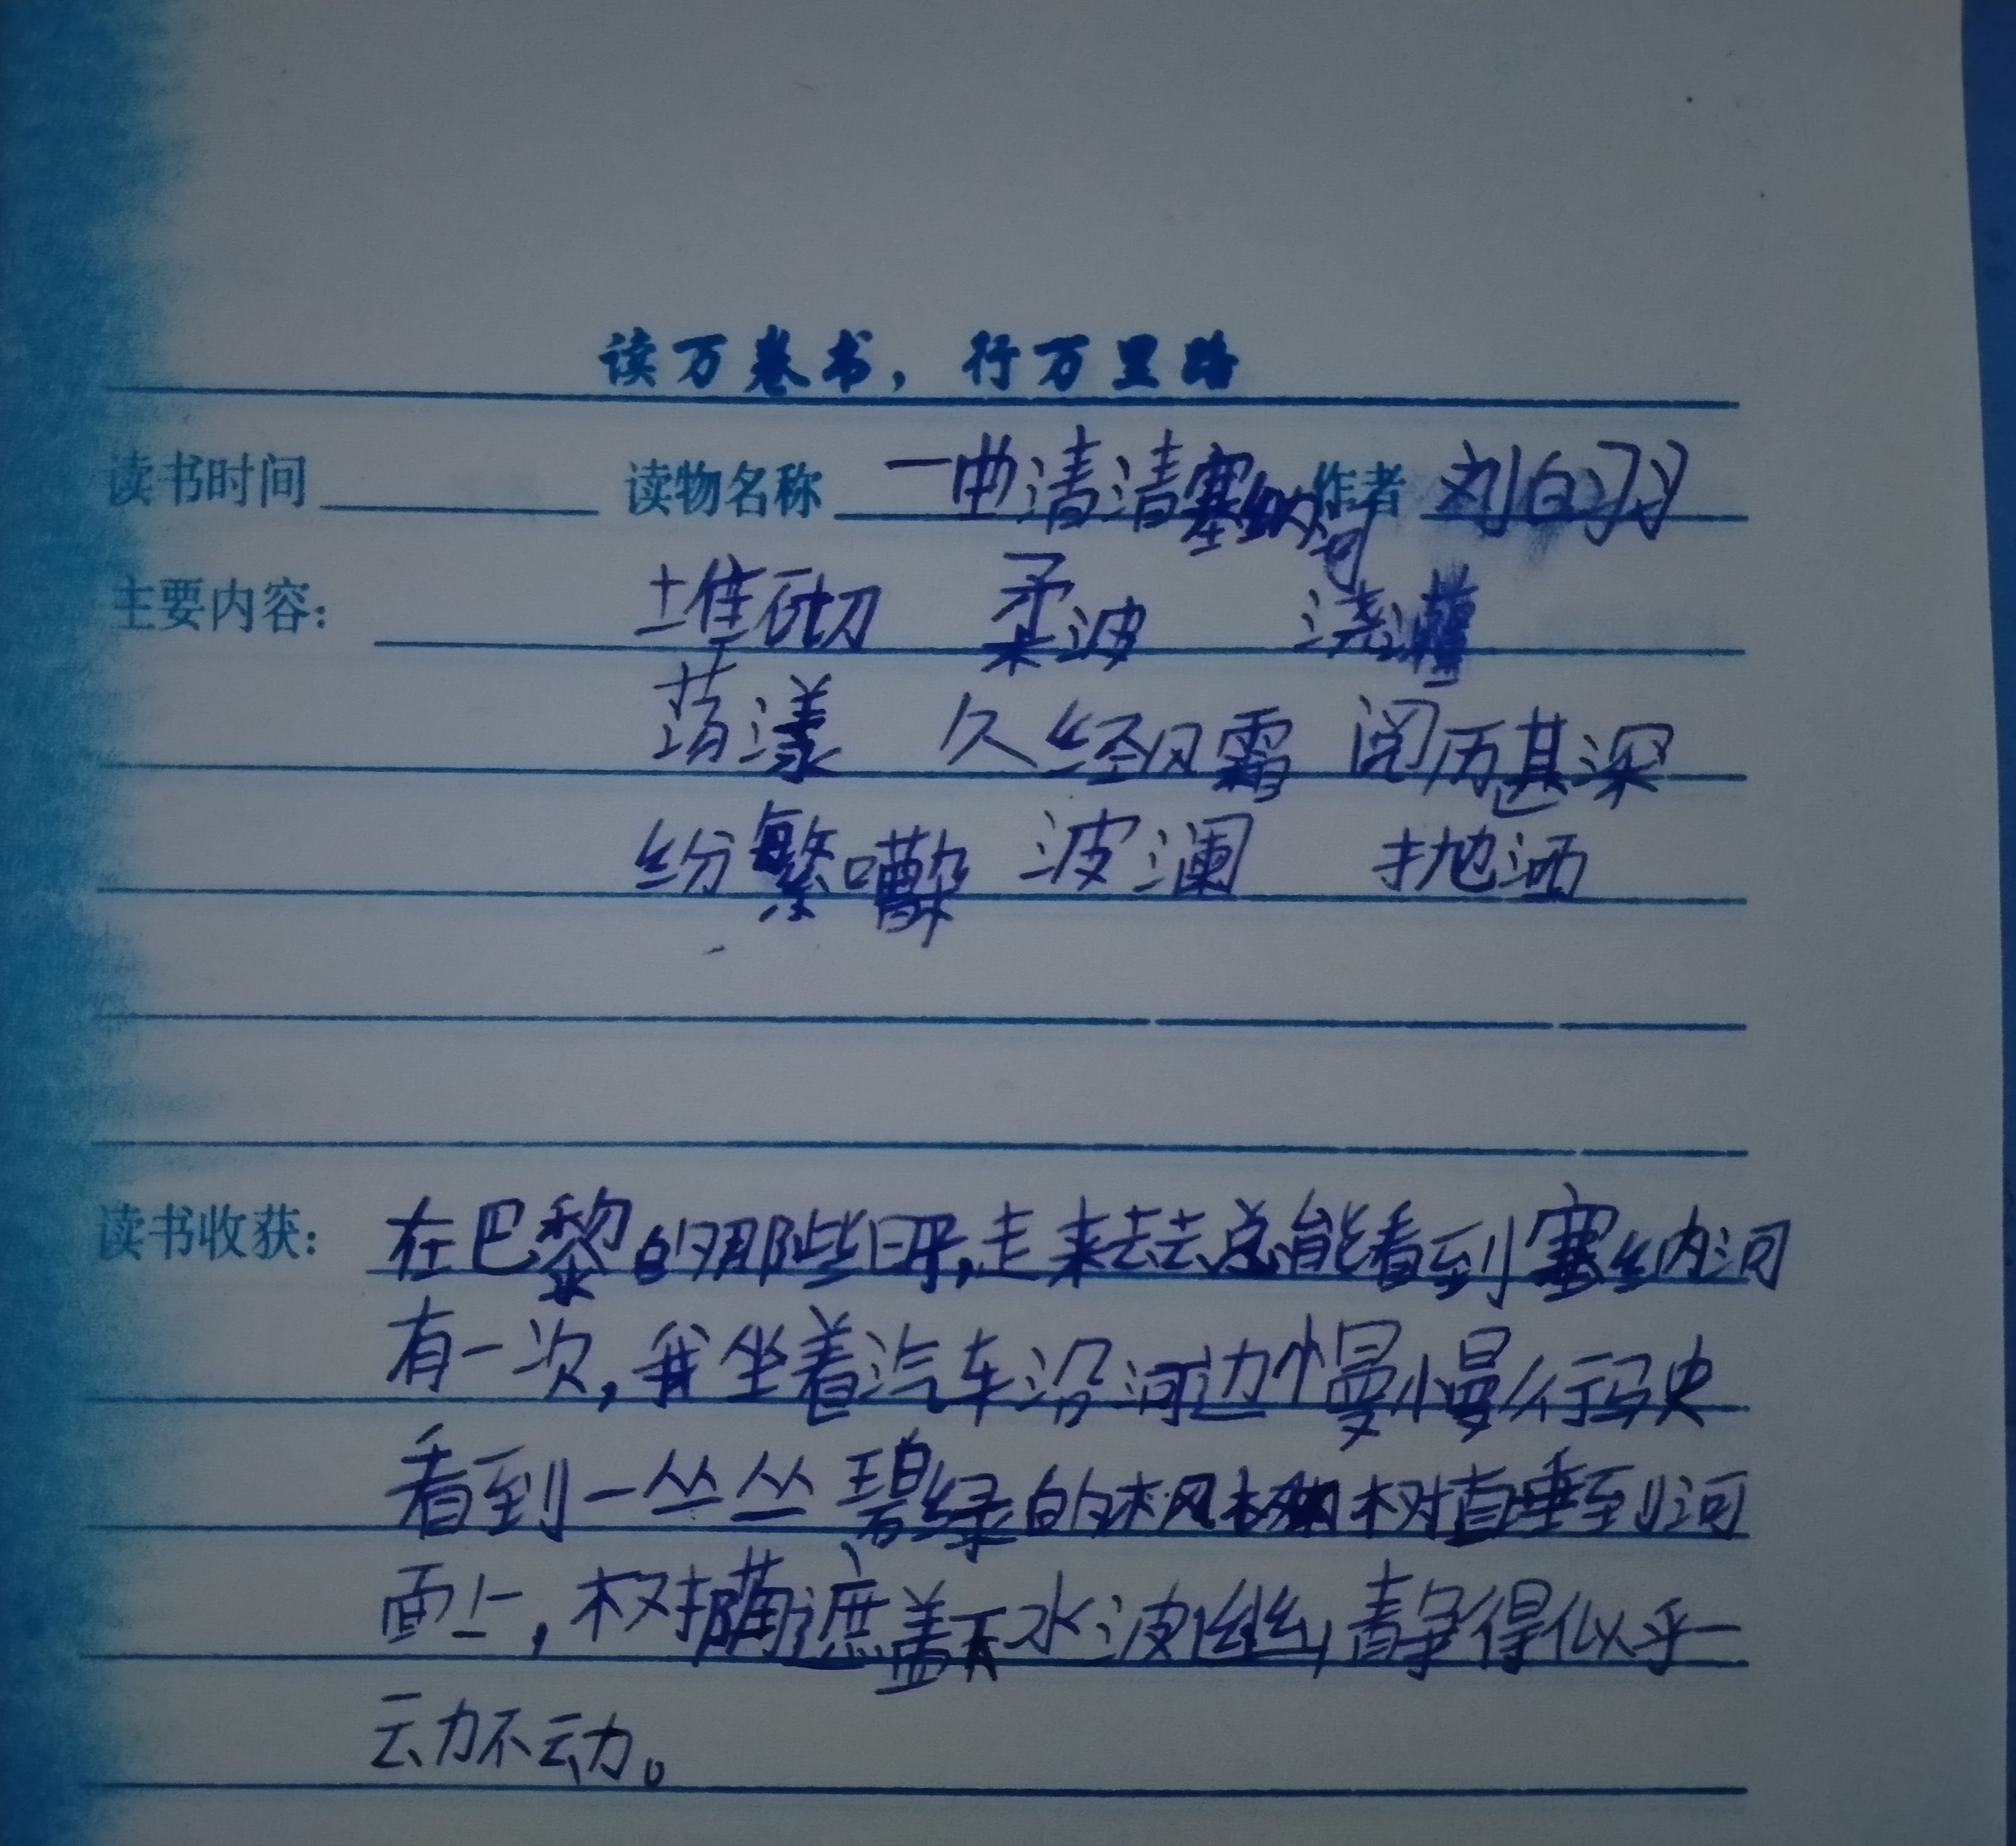 读万卷书，行万里路
读书时间 读物名称 一曲清清塞纳河 作者 刘白羽
主要内容： 堆砌 柔波 浇灌
荡漾 久经风霜 阅历甚深
纷繁嘈杂 波澜 抛洒
读书收获： 在巴黎的那些日子,走来去去总能看到塞纳河
有一次,我坐着汽车沿河边慢慢行驶
看到一丛丛碧绿的枫树直垂到河
面上,树荫遮盖下水波幽幽,静得似乎一
动不动。